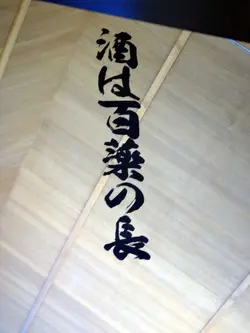 酒は百薬の長